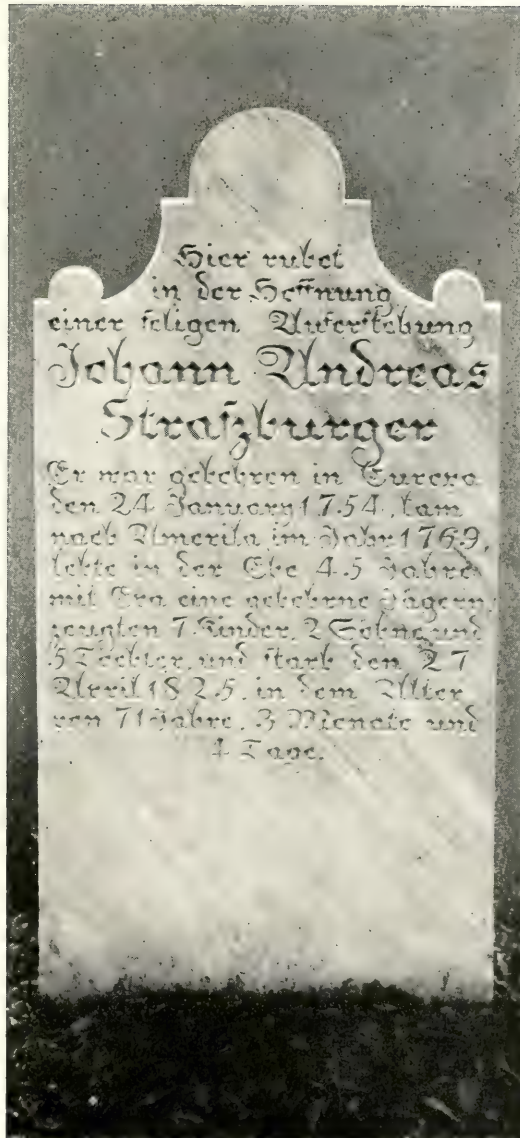 Hier ruhet
in der Hoffnung
einer seligen Auferstehung
Johann Andreas
Straszburger
Er war gebohren in Europa
den 24 January 1754, kam
nach Amerika im Jahr 1769,
lebte in der Ehe 45 Jahre
mit Eva eine gebohrne Jägern,
zeugten 7 Kinder, 2 Söhne und
5 Töchter, und starb den 27
April 1825, in dem Alter
von 71 Jahre, 3 Monate und
4 Tage.